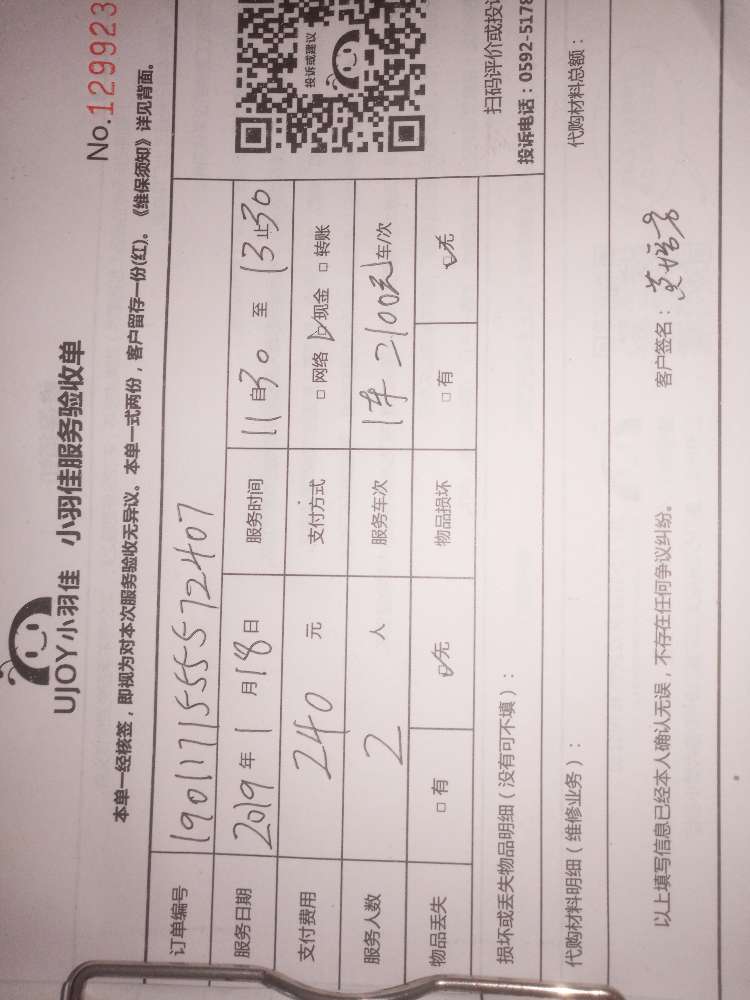 No.129923
UJOY小羽佳 小羽佳服务验收单
本单一经核签，即视为对本次服务验收无异议。本单一式两份，客户留存一份(红)。《维保须知》详见背面。
订单编号 190117155557 2407
服务日期 2019年1月18日 服务时间 11自30 至 13止30
支付费用 240 元 支付方式 □网络 □现金 □转账
服务人数 2 人 服务车次 1车2100元 车/次
物品丢失 □有 □无 物品损坏 □有 □无
投诉或建议
扫码评价或投诉
投诉电话：0592-5178
损坏或丢失物品明细（没有可不填）：
代购材料明细（维修业务）： 代购材料总额：
以上填写信息已经本人确认无误，不存在任何争议纠纷。 客户签名：